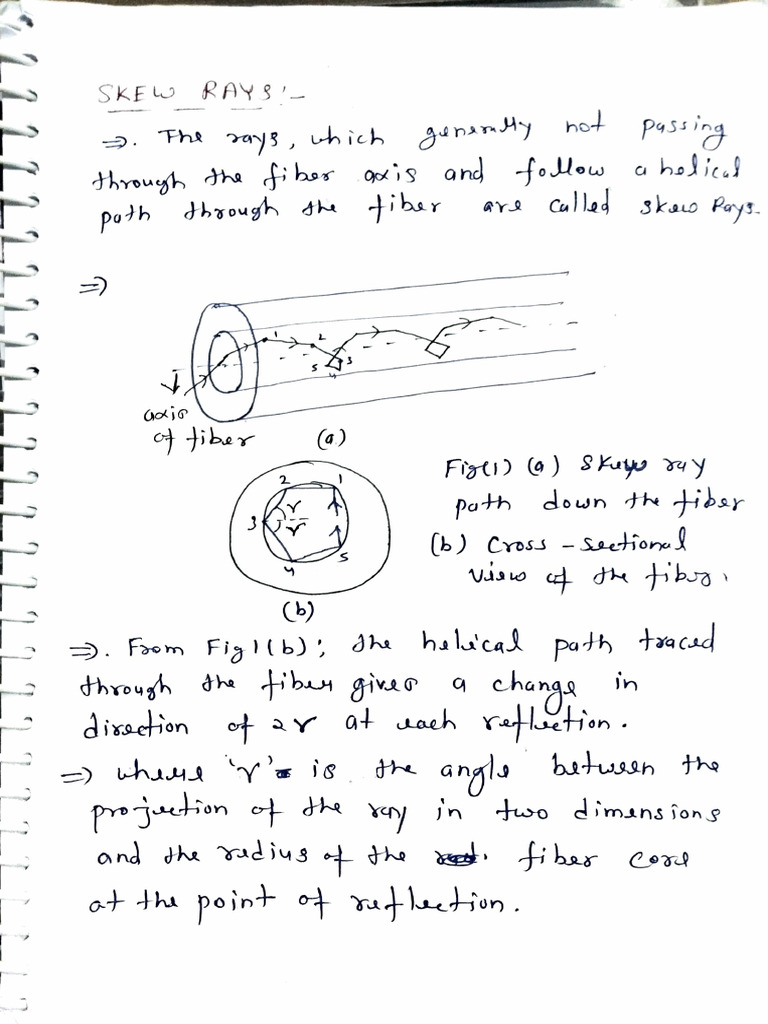 SKEW RAYS:-
⇒. The rays, which generally not passing
through the fiber axis and follow a helical
path through the fiber are called skew Rays.
⇒
1 2
5 3
4
axis
of fiber (a)
Fig(1) (a) Skew ray
path down the fiber
(b) Cross-sectional
view of the fiber.
2 1
3 γ
γ
4 5
(b)
⇒. From Fig1(b); the helical path traced
through the fiber gives a change in
direction of 2γ at each reflection.
⇒ where 'γ' is the angle between the
projection of the ray in two dimensions
and the radius of the fiber core
at the point of reflection.